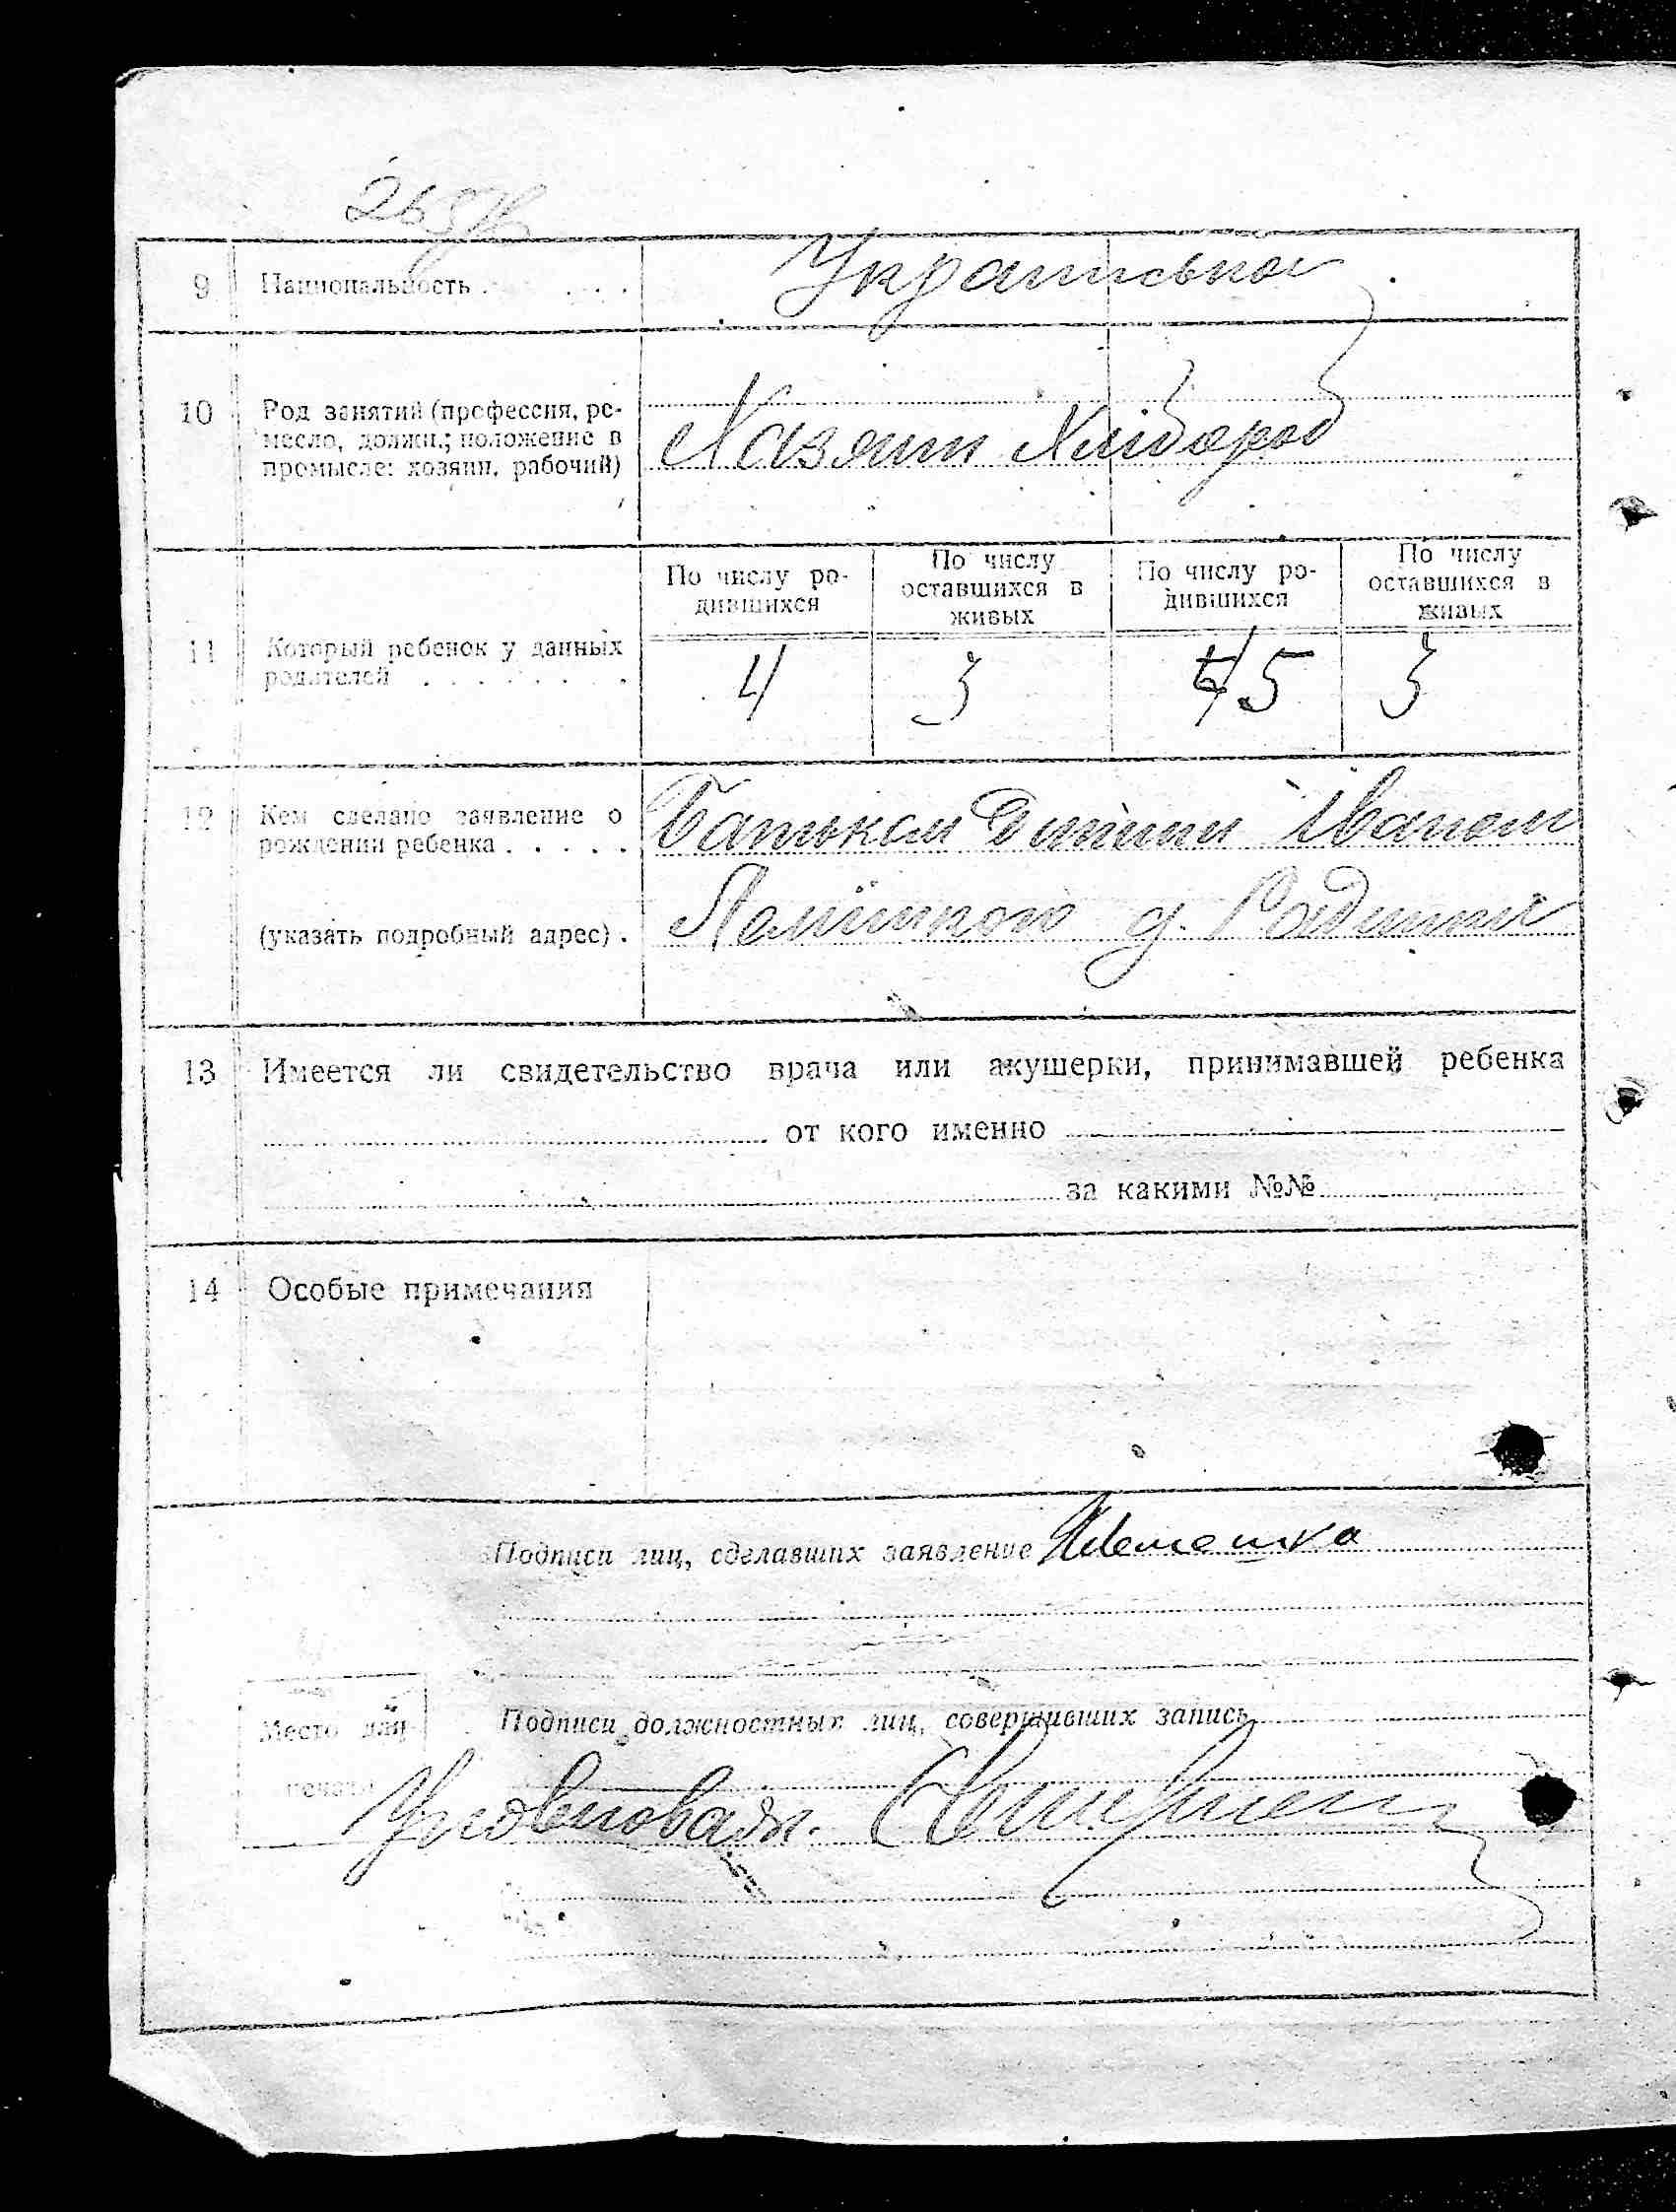 9 Национальность . . . . Украинської
10 Род занятий (профессия, ре-
месло, должн.; положение в
промысле: хозяин, рабочий)
Хазяин Хлібороб
По числу ро-
дившихся
По числу
оставшихся в
живых
По числу ро-
дившихся
По числу
оставшихся в
живых
11 Который ребенок у данных
родителей . . . . . . . .
4 3 5 3
12 Кем сделано заявление о
рождении ребенка . . . . .
Батьком Дитини Іваном
(указать подробный адрес) .
13 Имеется ли свидетельство врача или акушерки, принимавшей ребенка
от кого именно
за какими №№
14 Особые примечания
Подписи лиц, сделавших заявление
Место для
печати
Подписи должностных лиц, совершивших запись